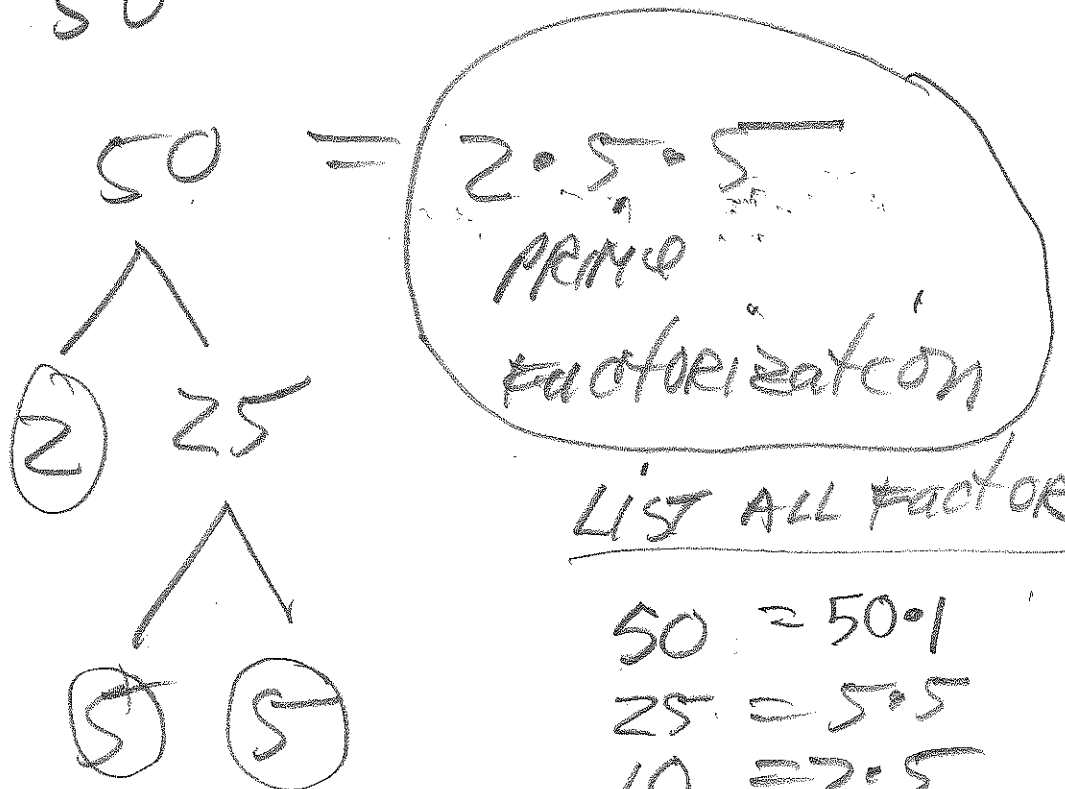 50
50 = 2•5•5
PRIME
FACTORIZATION
2 25
LIST ALL FACTOR
50 = 50•1
5 5
25 = 5•5
10 = 2•5